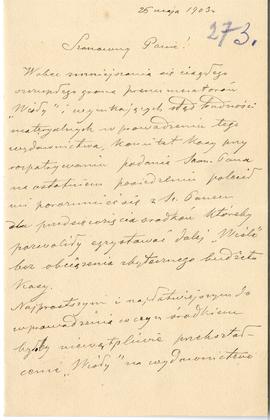 26 maja 1903 r.
273.
Szanowny Panie!
Wobec zmniejszania się ciągłego
szczupłego grona prenumeratorów
„Wisły” i wynikających stąd trudności
materyalnych w prowadzeniu tego
wydawnictwa, Komitet Kasy przy
rozpatrywaniu podania Szan. Pana
na ostatniem posiedzeniu polecił
mi porozumieć się z Sz. Panem
dla przedsięwzięcia środków któreby
pozwoliły egzystować dalej „Wiśle”
bez obciążenia zbytecznego budżetu
Kasy.
Najprostszym i najłatwiejszym do
wprowadzenia w czyn środkiem
byłby niewątpliwie przekształ-
cenie „Wisły” na wydawnictwo